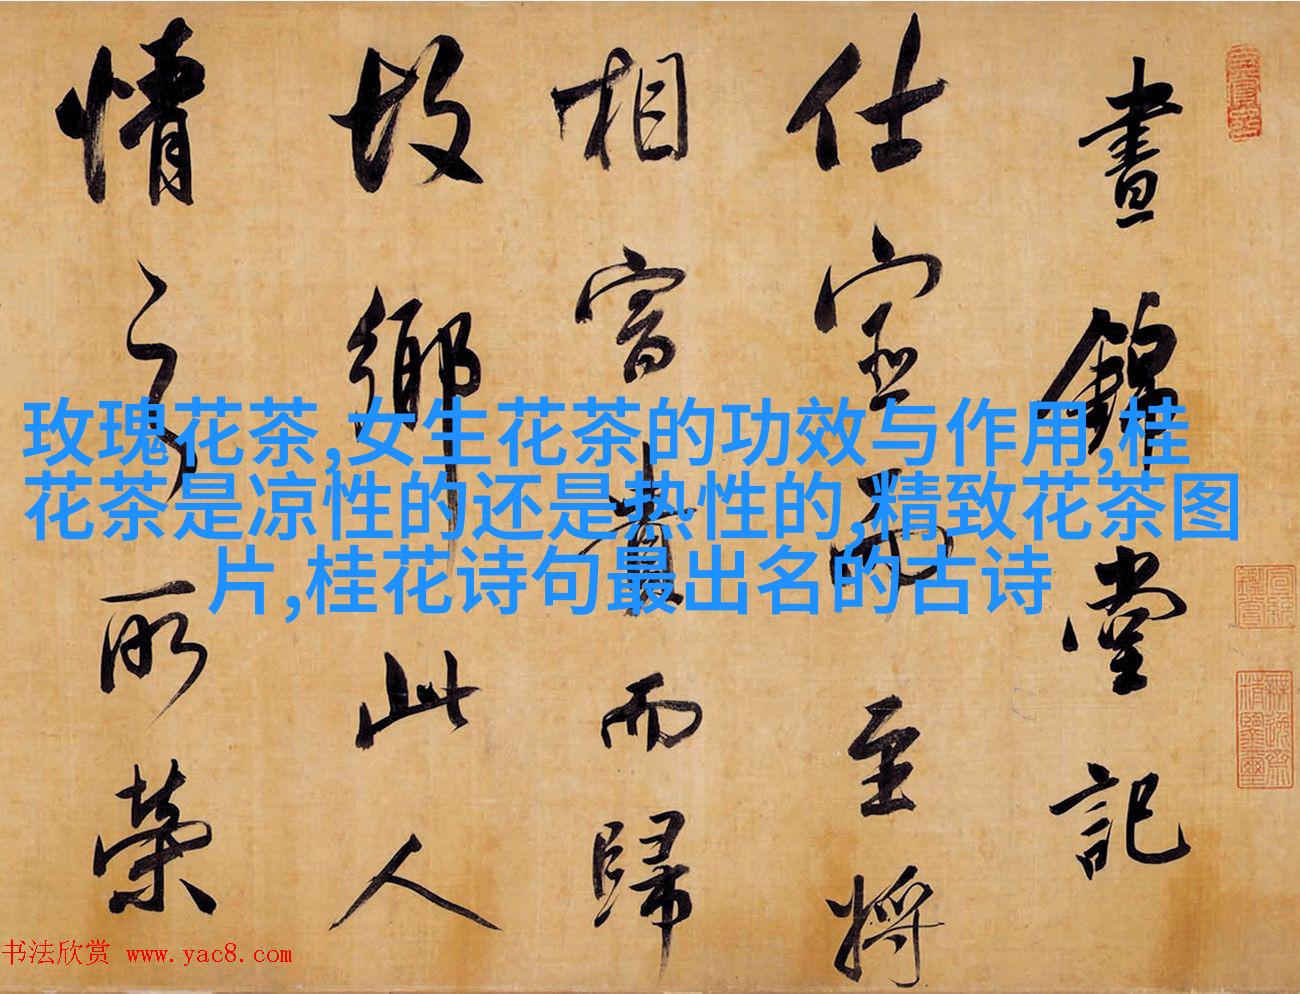 晝錦堂記
仕宦而至將
相富貴而歸
故鄉此人
情之所榮
玫瑰花茶,女生花茶的功效与作用,桂
花茶是凉性的还是热性的,精致花茶图
片,桂花诗句最出名的古诗
书法欣赏 www.yac8.com